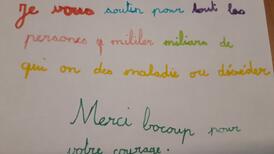 Je vous soutin pour tout les
persones q mililer miliars de
qui on des maladie ou décéder
Merci bocoup pour
votre courage.